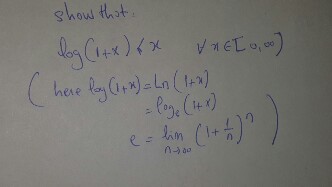 show that:
log(1+x) ≤ x ∀ x ∈ [0,∞)
(here log(1+x) = Ln(1+x)
= log_e(1+x)
e = lim_{n→∞} (1 + 1/n)^n)